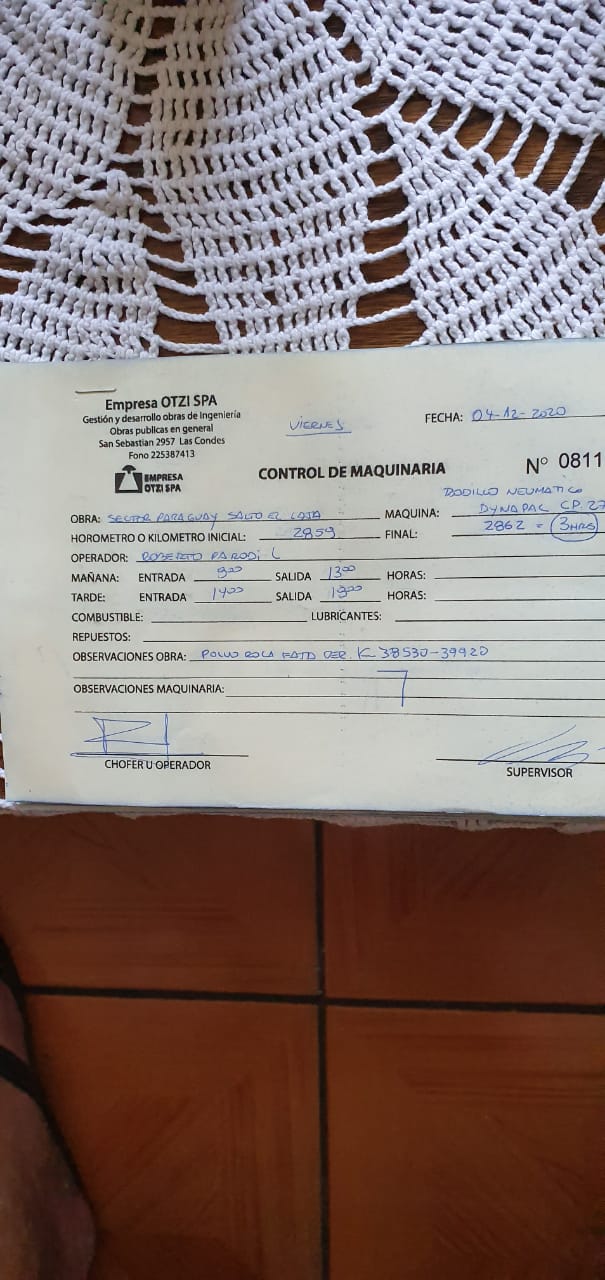 Empresa OTZI SPA
Gestión y desarrollo obras de Ingeniería
Obras publicas en general
San Sebastian 2957 Las Condes
Fono 225387413
VIERNES
FECHA: 04-12-2020
EMPRESA
OTZI SPA
CONTROL DE MAQUINARIA
N° 0811
RODILLO NEUMATICO
OBRA: SECTOR PARAGUAY SALTO EL LAJA MAQUINA: DYNAPAC CP. 27
HOROMETRO O KILOMETRO INICIAL: 2859 FINAL: 2862 = 3HRS
OPERADOR: ROBERTO PARODI L
MAÑANA: ENTRADA 900 SALIDA 1300 HORAS:
TARDE: ENTRADA 1400 SALIDA HORAS:
COMBUSTIBLE: LUBRICANTES:
REPUESTOS:
OBSERVACIONES OBRA: POLVO ROCA DER. K 38530-39920
OBSERVACIONES MAQUINARIA:
CHOFER U OPERADOR
SUPERVISOR